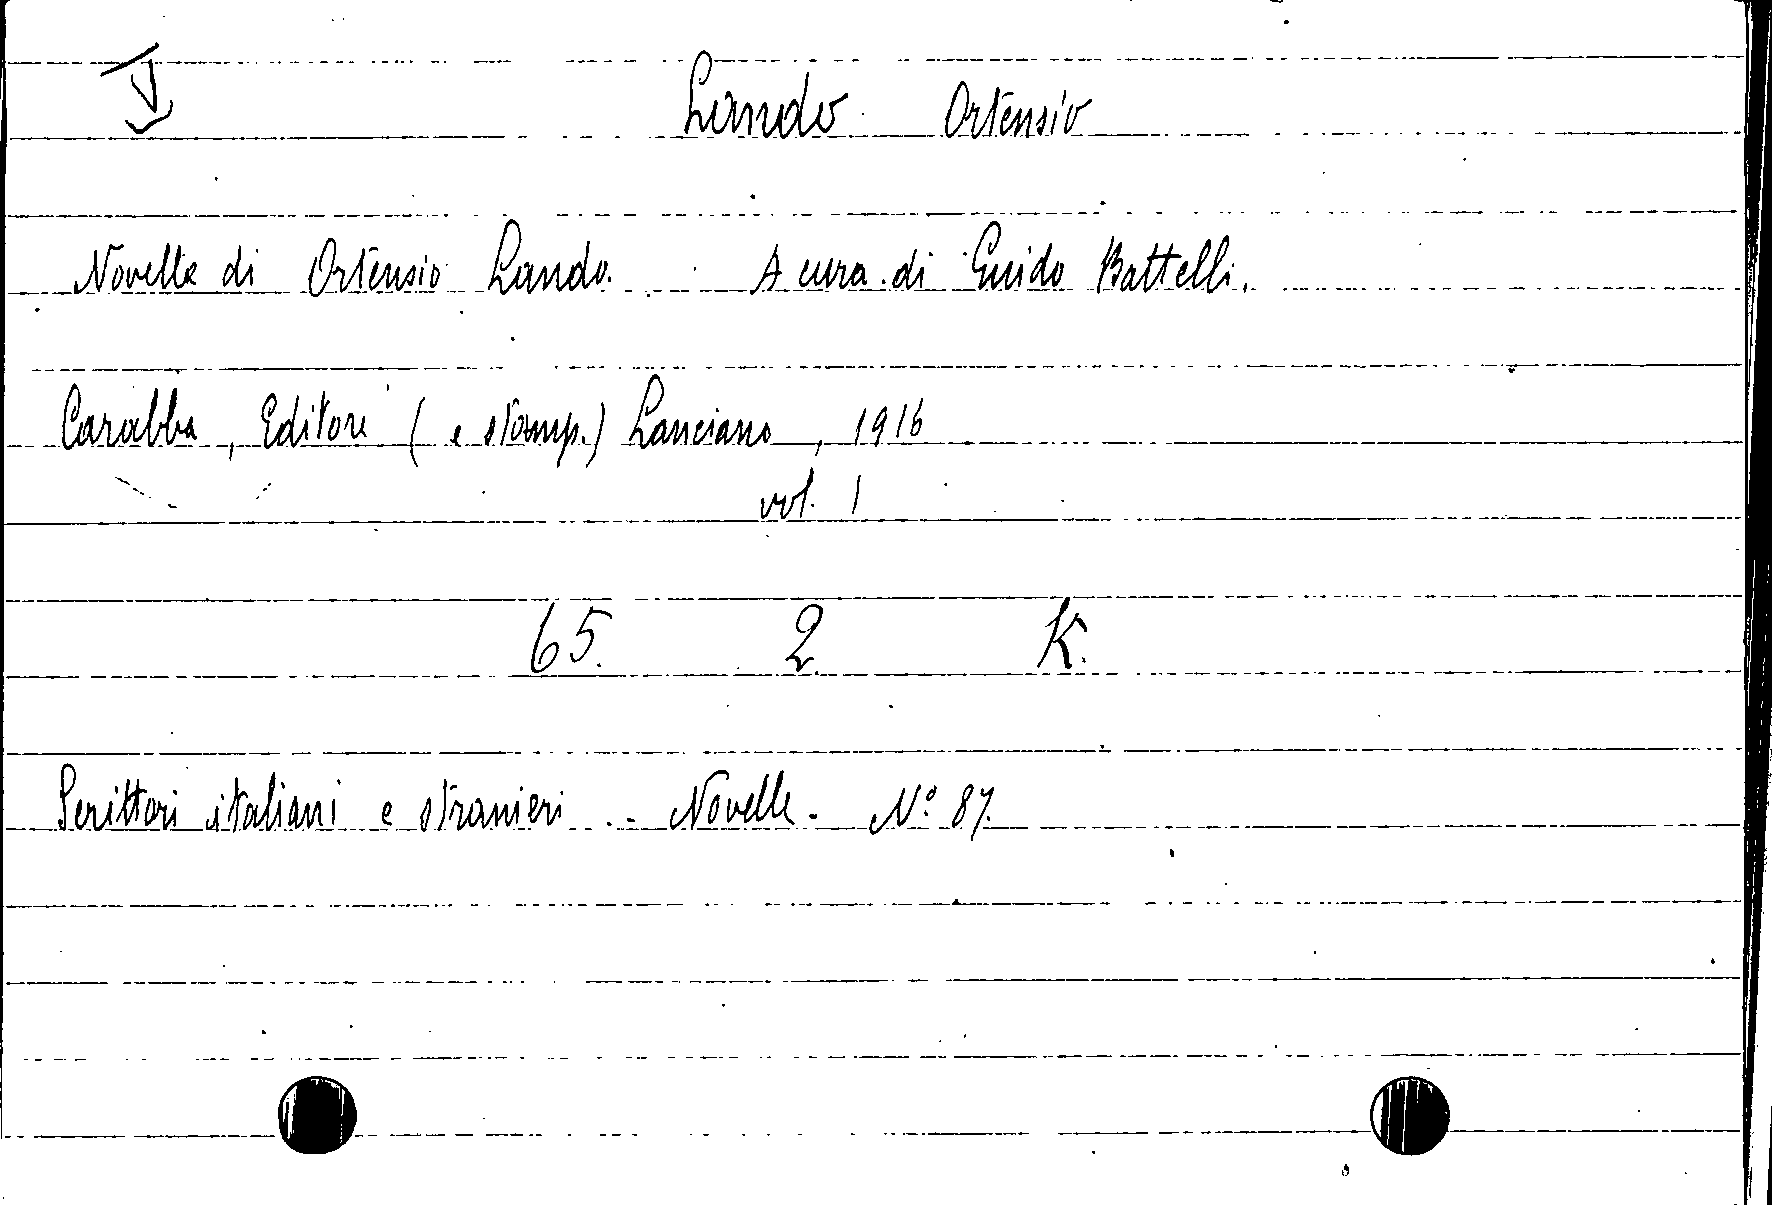 Lando Ortensio
Novelle di Ortensio Lando. A cura di Guido Battelli.
Carabba, Editore (e stamp.) Lanciano, 1916
vol. 1
65. 2. K.
Scrittori italiani e stranieri - Novelle - N.º 87.